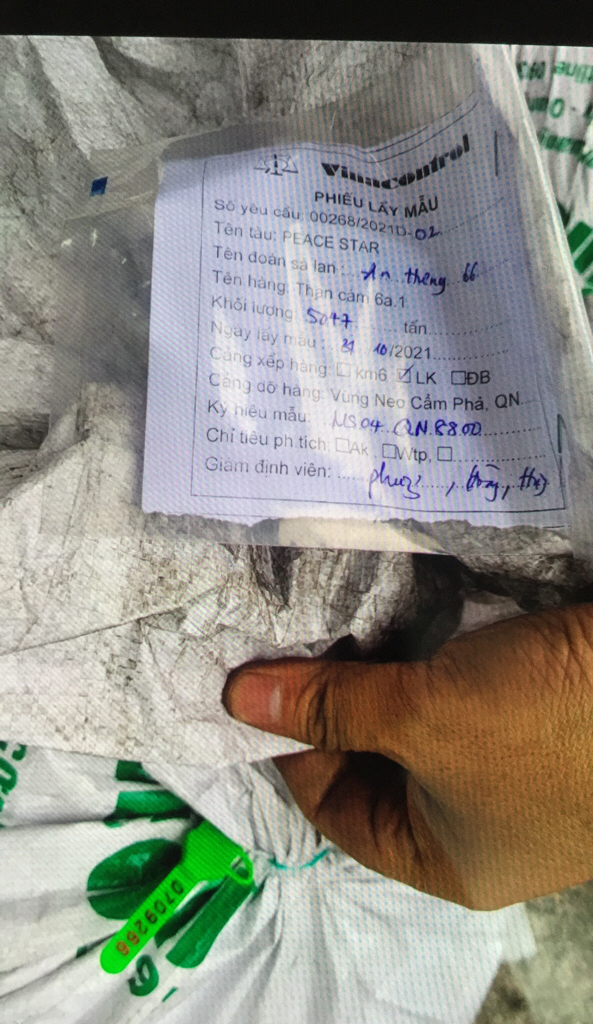 Vinacontrol
PHIẾU LẤY MẪU
Số yêu cầu: 00268/2021D-02
Tên tàu: PEACE STAR
Tên đoàn sà lan: An thắng 66
Tên hàng: Than cám 6a.1
Khối lượng: 5047 tấn
Ngày lấy mẫu: 31 10/2021
Cảng xếp hàng: ☐ km6 ☑ LK ☐ĐB
Cảng dỡ hàng: Vùng Neo Cẩm Phả, QN
Ký hiệu mẫu: MS04 QN.8800
Chỉ tiêu ph tích: ☐Ak, ☐Wtp, ☐
Giám định viên:
0709266